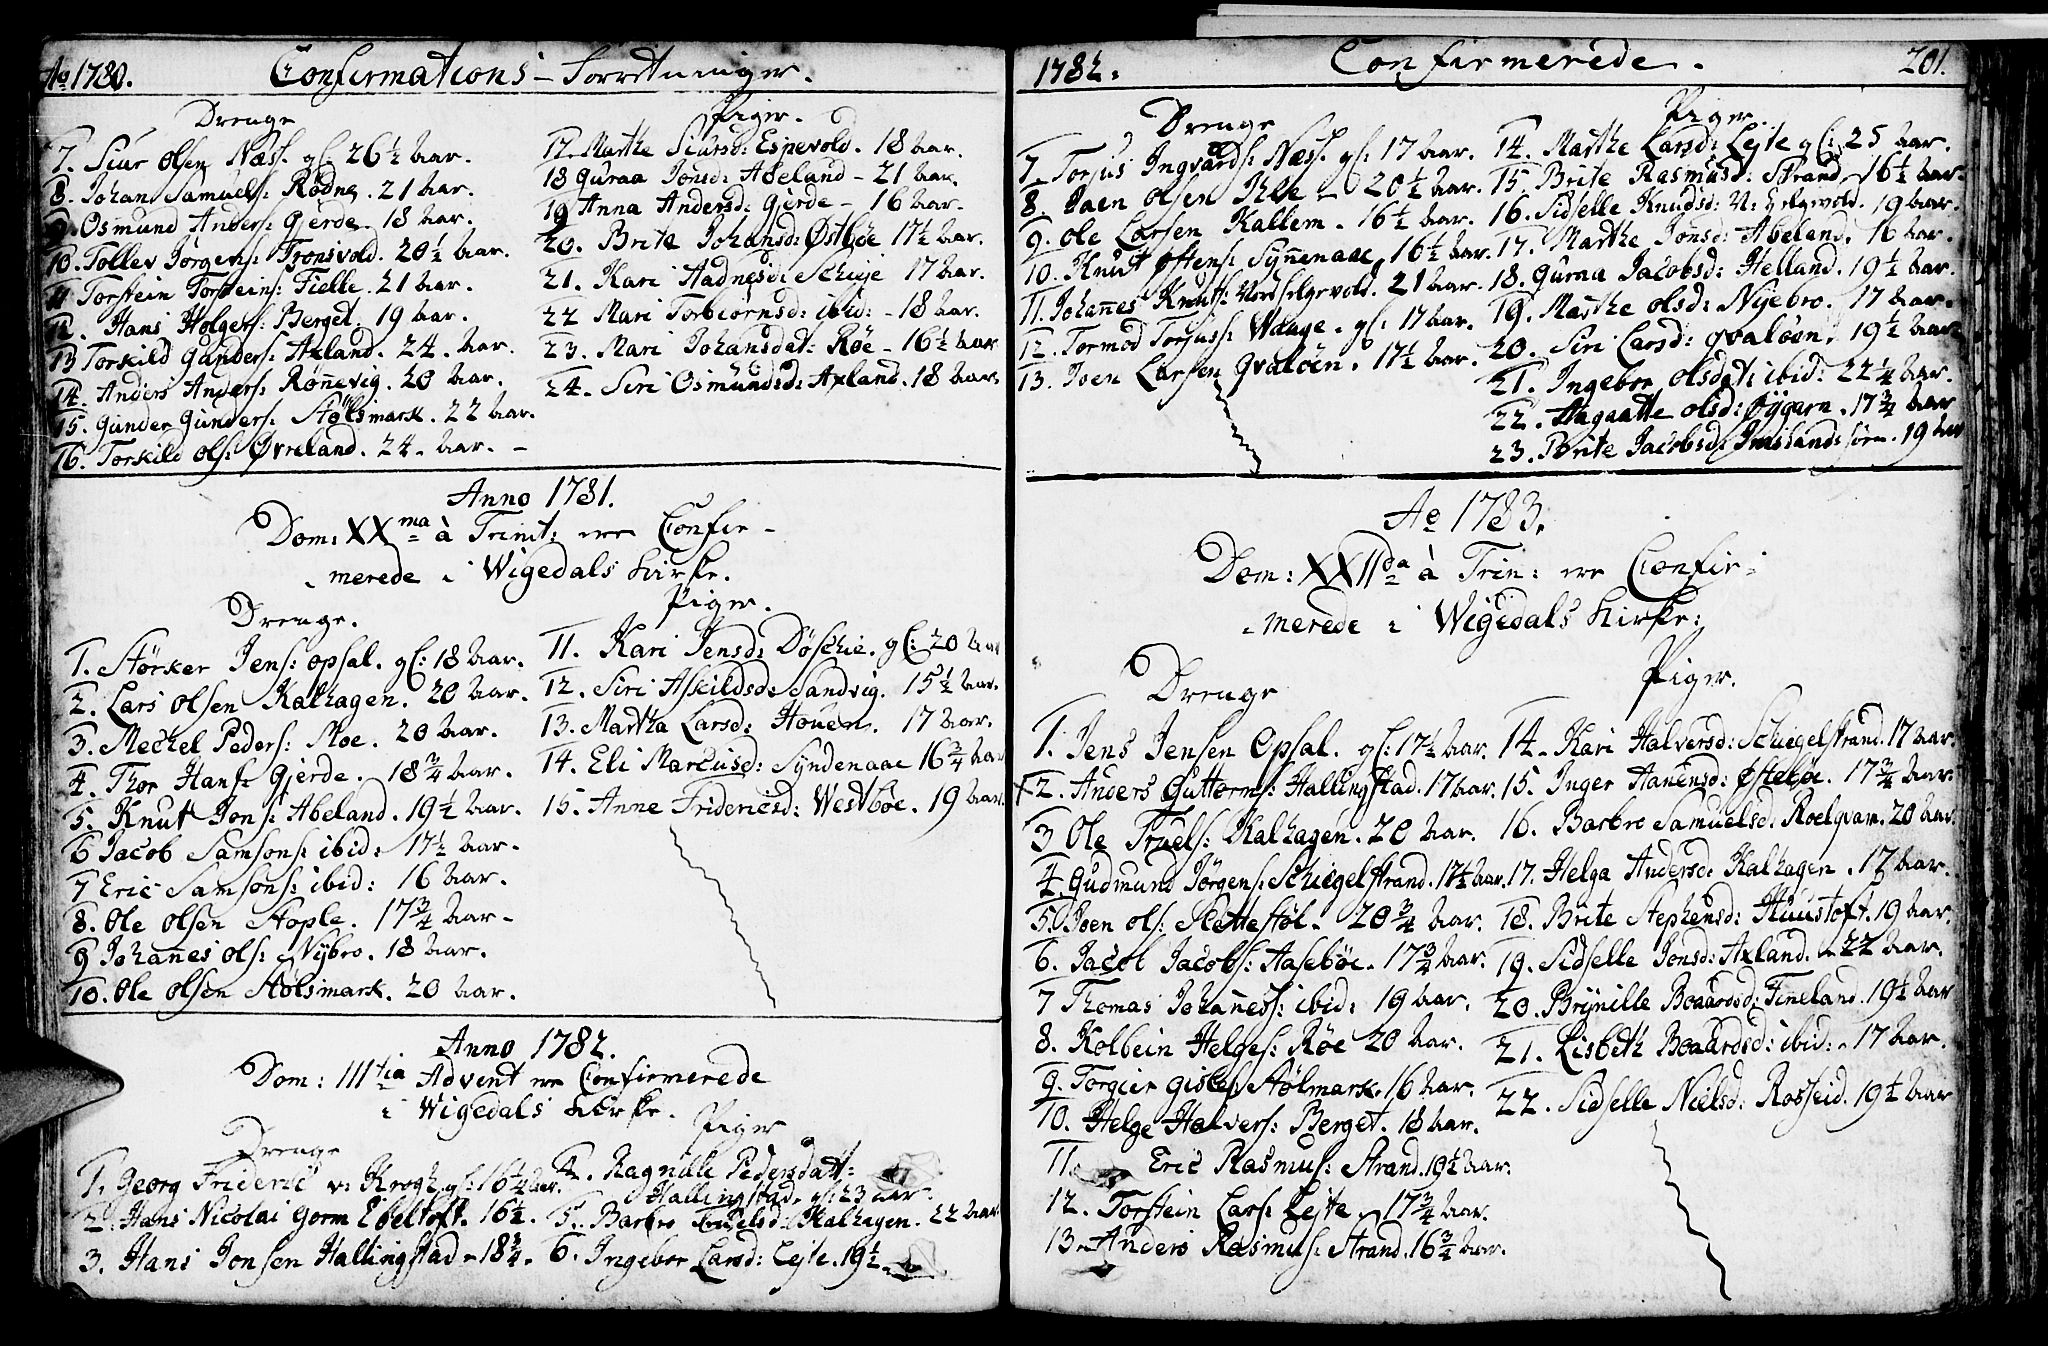 Ao 1780. Confirmations-Forretninger.
Drenge
7. Siur Olsen Næss. gl: 26½ Aar.
8. Johan Samuels: Rödne. 21 Aar.
9. Osmund Anders: Gjerde 18 Aar.
10. Tollev Jörgens: Fronsvold. 20½ Aar.
11 Torstein Torsteins: Fielle. 21 Aar.
12. Hans Holgers: Berget. 19 Aar.
13 Torkild Gunders: Axland. 24. Aar.
14. Anders Anders: Rønnevig. 20 Aar.
15. Gunder Gunders: Stølsmark. 22 Aar.
16. Torkild Ols: Øvreland. 24. Aar. –
Piger.
17. Marthe Siursd: Espevold. 18 Aar.
18 Guraa Jonsd: Abeland – 21 Aar.
19 Anna Andersd: Gjerde – 16 Aar.
20. Brita Johansd: Østböe 17½ Aar.
21. Kari Aadnesd: Schieje 17 Aar.
22 Mari Torbiörnsd: ibid: – 18 Aar.
23. Mari Johansdat: Röe – 16½ Aar
24. Siri Osmundsd: Axland. 18 Aar.
Anno 1781.
Dom: XXma à Trinit: ere Confir-
merede i Wigedals Kirke.
Drenge.
1. Störker Jens: Opsal. gl: 18 Aar.
2. Lars Olsen Kalhagen. 20 Aar.
3. Mechel Peders: Moe. 20 Aar.
4. Thor Hans: Gjerde. 18¾ Aar.
5. Knut Jons: Abeland. 19½ Aar.
6 Jacob Samsons: ibid: 17½ Aar.
7 Eric Samsons: ibid: 16 Aar.
8. Ole Olsen Stople. 17¾ Aar.
9 Johanes Ols: Nybro. 18 Aar.
10. Ole Olsen Stølsmark. 20 Aar.
Piger.
11. Kari Jensd: Döschie. gl: 20 Aar
12. Siri Askildsd: Sandvig. 15½ Aar.
13. Martha Larsd: Houen. 17 Aar.
14. Eli Marcusd: Syndenaae 16¾ Aar
15. Anne Fridericsd: Westböe. 19 Aar.
Anno 1782.
Dom: IIItia Advent ere Confirmerede
i Wigedals Kirke.
Drenge
1. Georg Frideric v: Krogh gl: 16¼ Aar.
2. Hans Nicolai Gorm Ebeltoft. 16½.
3. Hans Jonsen Hallingstad – 18¾.
Piger
4. Ragnille Pedersdatt:
Hallingstad. gl: 23 Aar.
5. Barbro Truelsd: Kalhagen. 22 Aar
6. Ingebor Larsd: Lejte. 19½
1782. Confirmerede. 201.
Drenge
7. Torjus Ingvards: Næss. gl: 17 Aar.
8. Joen Olsen – 20½ Aar.
9. Ole Larsen Kallem. 16½ Aar.
10. Knut Østens: Synnenaae, 16½ Aar.
11. Johannes Knuts: 21 Aar.
12. Tormod Torjuss: Waage. gl: 17 Aar.
13. Joen Larsen Qvalöen. 17½ Aar.
Piger.
14. Marthe Larsd: Lejte gl: 25 Aar.
15. Brite Rasmusd: Strand, 16½ Aar.
16. Sidselle Knudsd: 19 Aar.
17. Marthe Jonsd: Abeland. 16 Aar.
18. Guraa Jacobsd: Helland. 19½ Aar.
19. Marthe Olsd: Nyebro. 17 Aar.
20. Siri Larsd: Qvalöen. 19½ Aar
21. Ingebor Olsdat: ibid: 22¼ Aar.
22. Aagaatte Olsd: Øygarn. 17¾ Aar
23. Brite Jacobsd: Imsland: 19 Aar
Ao 1783.
Dom: XXIIda à Trin: ere Confir-
merede i Wigedals Kirke:
Drenge
1. Jens Jensen Opsal. gl: 17½ Aar.
2. Anders Guttorms: Hallingstad. 17 Aar.
3 Ole Truels: Kalhagen. 20 Aar.
4. Gudmund Jörgens: Schiegelstrand. 17½ Aar.
5. Joen Ols: Slettestöl. 20¾ Aar.
6. Jacob Jacobs: Aaseböe. 17¾ Aar.
7 Thomas Johaness: ibid: 19 Aar.
8. Kolbein Helges: Röe 20 Aar.
9. Torgier Stølmark. 16 Aar.
10. Helge Halvers: Berget. 18 Aar.
11. Eric Rasmus: Strand. 19½ Aar.
12. Torstein Lars: Lejte – 17¾ Aar.
13. Anders Rasmus: Strand. 16¾ Aar.
Piger.
14. Kari Halversd: Schiegelstrand. 17 Aar.
15. Inger Hanensd: Østeböe. 17¾ Aar.
16. Barbro Samuelsd: Roelqvam. 20 Aar.
17. Helga Andersd: Kalhagen. 17 Aar.
18. Brite Stephensd: Kuustoft. 19 Aar.
19. Sidselle Jonsd: Axland. 22 Aar.
20. Brynille Boaardsd: Fineland. 19½ Aar
21. Lisbeth Boaardsd: ibid: – 17 Aar.
22. Sidselle Nielsd: Rosseid. 19½ Aar